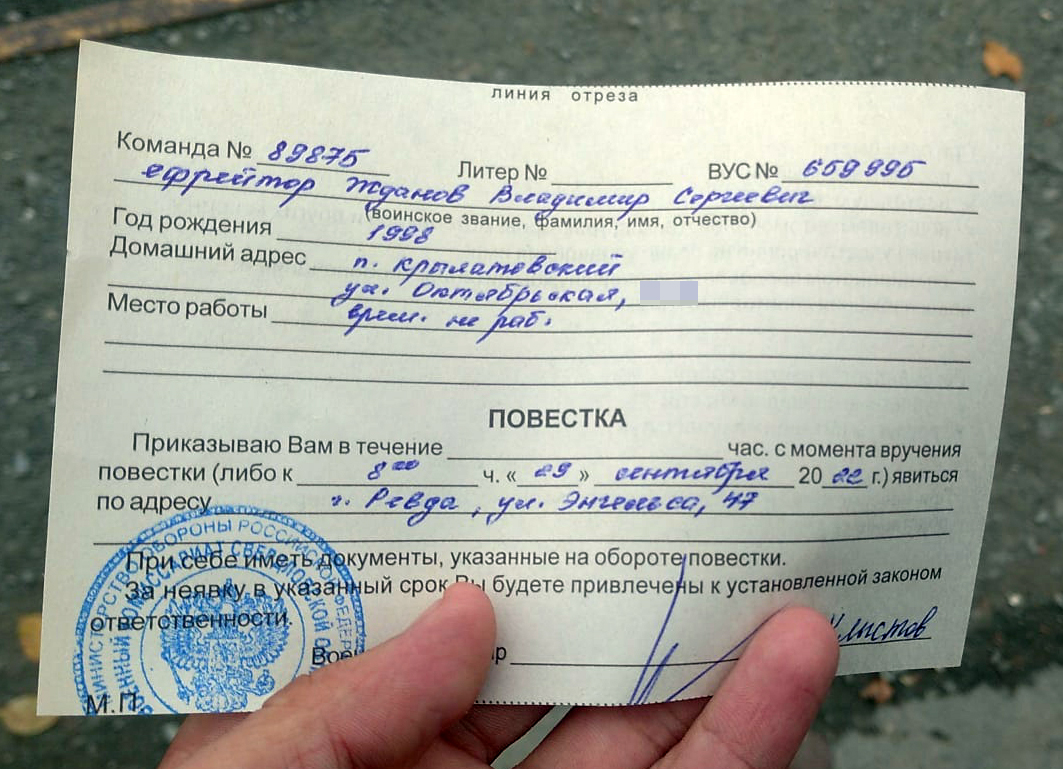 линия отреза
Команда № 89875 Литер № ВУС № 659995
ефрейтор Жданов Владимир Сергеевич
(воинское звание, фамилия, имя, отчество)
Год рождения 1998
Домашний адрес п. Крылатовский
ул. Октябрьская,
Место работы врем. не раб.
ПОВЕСТКА
Приказываю Вам в течение час. с момента вручения
повестки (либо к 8 00 ч. « 29 » сентября 20 22 г.) явиться
по адресу г. Ревда, ул. Энгельса, 47
При себе иметь документы, указанные на обороте повестки.
За неявку в указанный срок Вы будете привлечены к установленной законом
ответственности.
М.П.
МИНИСТЕРСТВО ОБОРОНЫ РОССИЙСКОЙ ФЕДЕРА
КОМИССАРИАТ СВЕРДЛОВСКОЙ